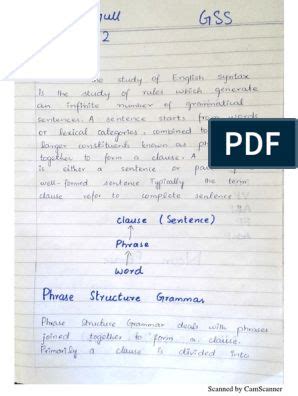 gull GSS
2
the study of English syntax
is the study of rules which generate
an infinite number of grammatical
sentences. A sentence starts from words
or lexical categories, combined to
larger constituents known as ph
together to form a clause. A
is either a sentence or pa
well-formed sentence Typically the term
clause refer to complete sentence
PDF
clause (Sentence)
Phrase
word
Phrase Structure Grammar
Phrase Structure Grammar deals with phrases
joined together to form a clause.
Primarily a clause is divided into
Scanned by CamScanner